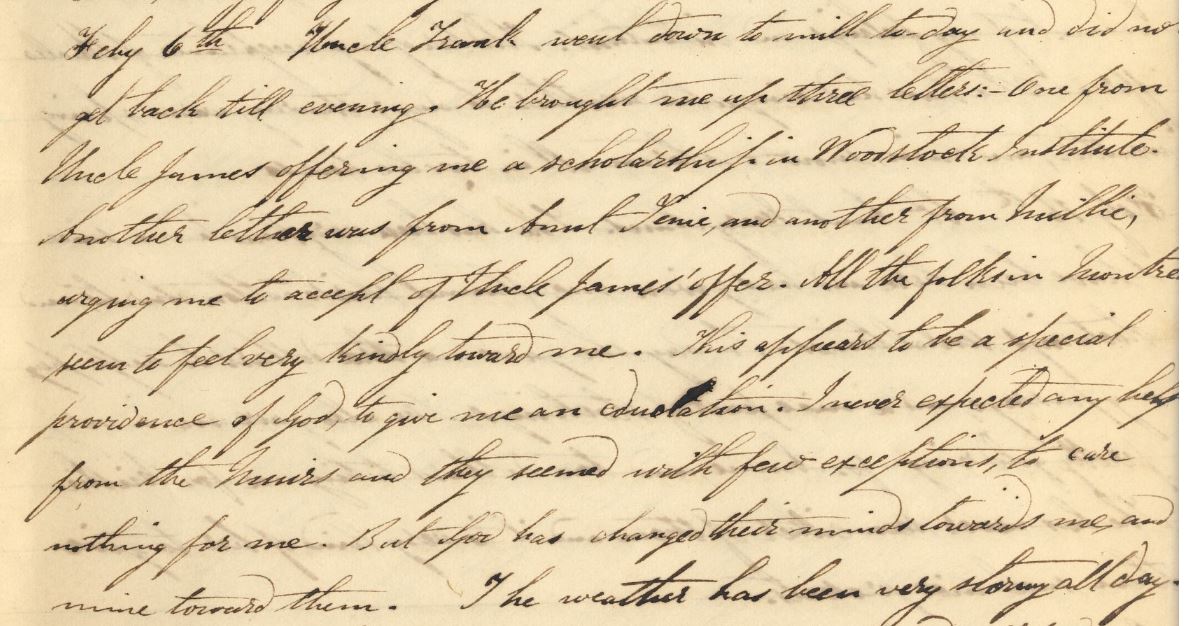 Feby 6th Uncle Frank went down to mill to-day and did no
get back till evening. He brought me up three letters:- One from
Uncle James offering me a scholarship in Woodstock Institute.
Another letter was from Aunt Tenie, and another from Millie,
urging me to accept of Uncle James' offer. All the folks in Montre
seem to feel very kindly toward me. This appears to be a special
providence of God, to give me an education. I never expected any help
from the Muirs and they seemed with few exceptions, to care
nothing for me. But God has changed their minds towards me, and
mine toward them. The weather has been very stormy all day.